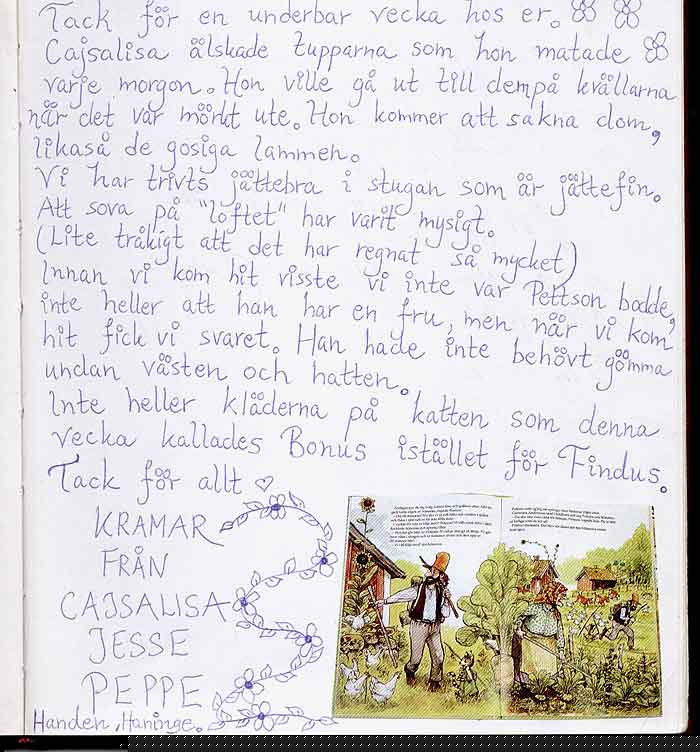 Tack för en underbar vecka hos er.
Cajsalisa älskade tupparna som hon matade
varje morgon. Hon ville gå ut till dempå kvällarna
när det var mörkt ute. Hon kommer att sakna dom,
likaså de gosiga lammen.
Vi har trivts jättebra i stugan som är jättefin.
Att sova på "loftet" har varit mysigt.
(Lite tråkigt att det har regnat så mycket)
Innan vi kom hit visste vi inte var Pettson bodde,
inte heller att han har en fru, men när vi kom
hit fick vi svaret. Han hade inte behövt gömma
undan västen och hatten.
Inte heller kläderna på katten som denna
vecka kallades Bonus istället för Findus.
Tack för allt ♡
KRAMAR
FRÅN
CAJSALISA
JESSE
PEPPE
Handen, Haninge.